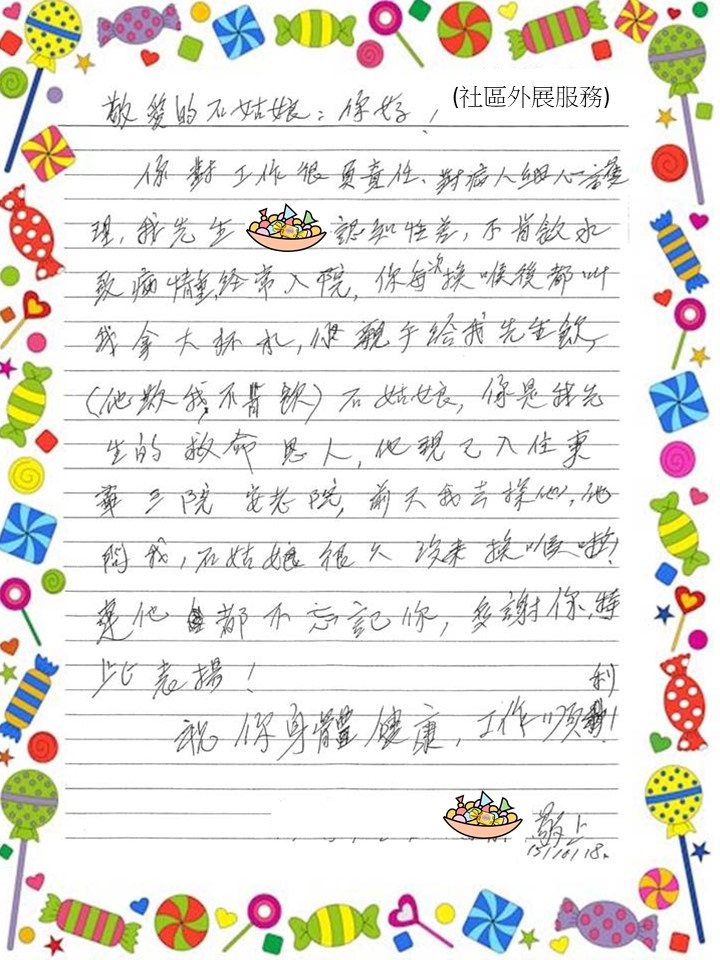 敬愛的石姑娘：你好！
(社區外展服務)
你對工作很負責任、對病人細心護
理，我先生 認知性差，不肯飲水
致病情重經常入院，你每次換喉後都叫
我拿大杯水，你親手給我先生飲，
(他欺我,不肯飲)石姑娘，你是我先
生的救命恩人，他現已入住東
華三院安老院，前天我去探他，他
問我，石姑娘很久沒來換喉啦！
連他都不忘記你，多謝你，特
此表揚！
祝你身體健康，工作順利！
敬上
15/10/18.